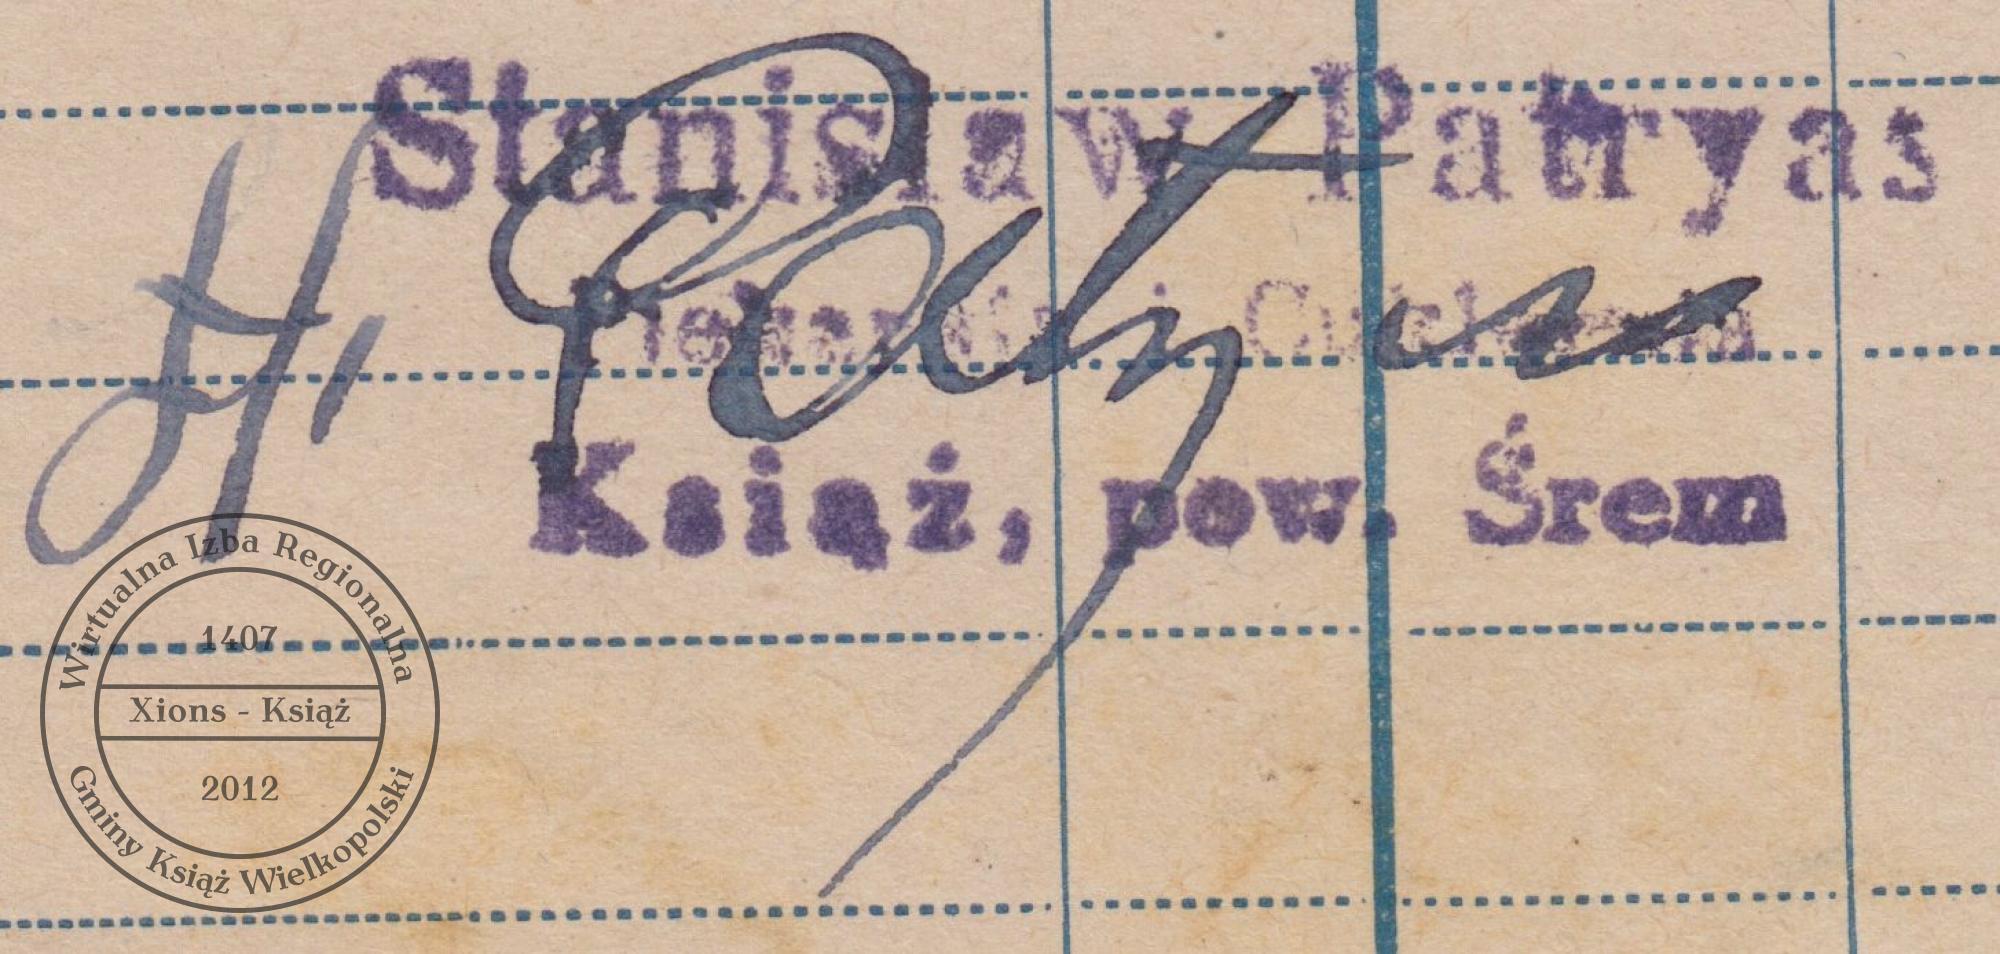 Stanisław Patryas
Piekarnia i Cukiernia
Książ, pow. Śrem
H. Patryas
Wirtualna Izba Regionalna
1407
Xions - Książ
2012
Gminy Książ Wielkopolski